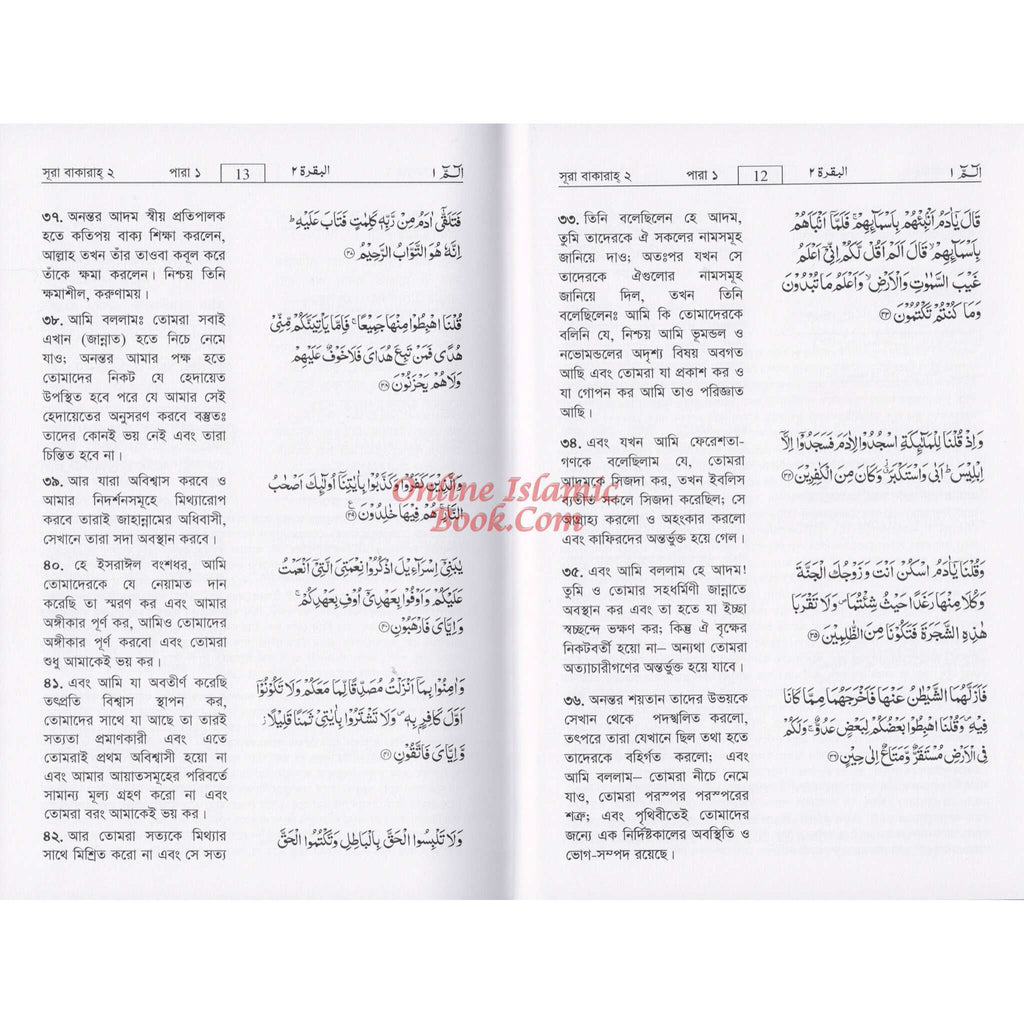 সূরা বাকারাহ্ ২ পারা ১ 13 البقرة ٢ الٓمّٓ ١
৩৭. অনন্তর আদম স্বীয় প্রতিপালক
হতে কতিপয় বাক্য শিক্ষা করলেন,
আল্লাহ তখন তাঁর তাওবা কবূল করে
তাঁকে ক্ষমা করলেন। নিশ্চয় তিনি
ক্ষমাশীল, করুণাময়।
فَتَلَقّٰٓى اٰدَمُ مِنْ رَّبِّهٖ كَلِمٰتٍ فَتَابَ عَلَيْهِ ؕ
اِنَّهٗ هُوَ التَّوَّابُ الرَّحِيْمُ ﴿۳۷﴾
৩৮. আমি বললামঃ তোমরা সবাই
এখান (জান্নাত) হতে নিচে নেমে
যাও; অনন্তর আমার পক্ষ হতে
তোমাদের নিকট যে হেদায়েত
উপস্থিত হবে পরে যে আমার সেই
হেদায়েতের অনুসরণ করবে বস্তুতঃ
তাদের কোনই ভয় নেই এবং তারা
চিন্তিত হবে না।
قُلْنَا اهْبِطُوْا مِنْهَا جَمِيْعًا ۚ فَاِمَّا يَاْتِيَنَّكُمْ مِّنِّيْ
هُدًى فَمَنْ تَبِعَ هُدَايَ فَلَا خَوْفٌ عَلَيْهِمْ
وَلَا هُمْ يَحْزَنُوْنَ ﴿۳۸﴾
৩৯. আর যারা অবিশ্বাস করবে ও
আমার নিদর্শনসমূহে মিথ্যারোপ
করবে তারাই জাহান্নামের অধিবাসী,
সেখানে তারা সদা অবস্থান করবে।
وَالَّذِيْنَ كَفَرُوْا وَكَذَّبُوْا بِاٰيٰتِنَاۤ اُولٰٓئِكَ اَصْحٰبُ
النَّارِ ۚ هُمْ فِيْهَا خٰلِدُوْنَ ﴿۳۹﴾
৪০. হে ইসরাঈল বংশধর, আমি
তোমাদেরকে যে নেয়ামত দান
করেছি তা স্মরণ কর এবং আমার
অঙ্গীকার পূর্ণ কর, আমিও তোমাদের
অঙ্গীকার পূর্ণ করবো এবং তোমরা
শুধু আমাকেই ভয় কর।
يٰبَنِيْٓ اِسْرَآءِيْلَ اذْكُرُوْا نِعْمَتِيَ الَّتِيْٓ اَنْعَمْتُ
عَلَيْكُمْ وَاَوْفُوْا بِعَهْدِيْٓ اُوْفِ بِعَهْدِكُمْ ۚ
وَاِيَّايَ فَارْهَبُوْنِ ﴿۴۰﴾
৪১. এবং আমি যা অবতীর্ণ করেছি
তৎপ্রতি বিশ্বাস স্থাপন কর,
তোমাদের সাথে যা আছে তা তারই
সত্যতা প্রমাণকারী এবং এতে
তোমরাই প্রথম অবিশ্বাসী হয়ো না
এবং আমার আয়াতসমূহের পরিবর্তে
সামান্য মূল্য গ্রহণ করো না এবং
তোমরা বরং আমাকেই ভয় কর।
وَاٰمِنُوْا بِمَاۤ اَنْزَلْتُ مُصَدِّقًا لِّمَا مَعَكُمْ وَلَا تَكُوْنُوْٓا
اَوَّلَ كَافِرٍۭ بِهٖ ۪ وَلَا تَشْتَرُوْا بِاٰيٰتِيْ ثَمَنًا قَلِيْلًا ؗ
وَّاِيَّايَ فَاتَّقُوْنِ ﴿۴۱﴾
৪২. আর তোমরা সত্যকে মিথ্যার
সাথে মিশ্রিত করো না এবং সে সত্য
وَلَا تَلْبِسُوا الْحَقَّ بِالْبَاطِلِ وَتَكْتُمُوا الْحَقَّ
সূরা বাকারাহ্ ২ পারা ১ 12 البقرة ٢ الٓمّٓ ١
৩৩. তিনি বলেছিলেন হে আদম,
তুমি তাদেরকে ঐ সকলের নামসমূহ
জানিয়ে দাও; অতঃপর যখন সে
তাদেরকে ঐগুলোর নামসমূহ
জানিয়ে দিল, তখন তিনি
বলেছিলেনঃ আমি কি তোমাদেরকে
বলিনি যে, নিশ্চয় আমি ভূমন্ডল ও
নভোমন্ডলের অদৃশ্য বিষয় অবগত
আছি এবং তোমরা যা প্রকাশ কর ও
যা গোপন কর আমি তাও পরিজ্ঞাত
আছি।
قَالَ يٰۤاٰدَمُ اَنْۢبِئْهُمْ بِاَسْمَآئِهِمْ ۚ فَلَمَّاۤ اَنْۢبَاَهُمْ
بِاَسْمَآئِهِمْ ۙ قَالَ اَلَمْ اَقُلْ لَّكُمْ اِنِّيْٓ اَعْلَمُ
غَيْبَ السَّمٰوٰتِ وَالْاَرْضِ ۙ وَاَعْلَمُ مَا تُبْدُوْنَ
وَمَا كُنْتُمْ تَكْتُمُوْنَ ﴿۳۳﴾
৩৪. এবং যখন আমি ফেরেশতা-
গণকে বলেছিলাম যে, তোমরা
আদমকে সিজদা কর, তখন ইবলিস
ব্যতীত সকলে সিজদা করেছিল; সে
অগ্রাহ্য করলো ও অহংকার করলো
এবং কাফিরদের অন্তর্ভুক্ত হয়ে গেল।
وَاِذْ قُلْنَا لِلْمَلٰٓئِكَةِ اسْجُدُوْا لِاٰدَمَ فَسَجَدُوْٓا اِلَّاۤ
اِبْلِيْسَ ؕ اَبٰى وَاسْتَكْبَرَ ۗ وَكَانَ مِنَ الْكٰفِرِيْنَ ﴿۳۴﴾
৩৫. এবং আমি বললাম হে আদম!
তুমি ও তোমার সহধর্মিণী জান্নাতে
অবস্থান কর এবং তা হতে যা ইচ্ছা
স্বচ্ছন্দে ভক্ষণ কর; কিন্তু ঐ বৃক্ষের
নিকটবর্তী হয়ো না– অন্যথা তোমরা
অত্যাচারীগণের অন্তর্ভুক্ত হয়ে যাবে।
وَقُلْنَا يٰۤاٰدَمُ اسْكُنْ اَنْتَ وَزَوْجُكَ الْجَنَّةَ
وَكُلَا مِنْهَا رَغَدًا حَيْثُ شِئْتُمَا ۪ وَلَا تَقْرَبَا
هٰذِهِ الشَّجَرَةَ فَتَكُوْنَا مِنَ الظّٰلِمِيْنَ ﴿۳۵﴾
৩৬. অনন্তর শয়তান তাদের উভয়কে
সেখান থেকে পদস্খলিত করলো,
তৎপরে তারা যেখানে ছিল তথা হতে
তাদেরকে বহির্গত করলো; এবং
আমি বললাম– তোমরা নীচে নেমে
যাও, তোমরা পরস্পর পরস্পরের
শত্রু; এবং পৃথিবীতেই তোমাদের
জন্যে এক নির্দিষ্টকালের অবস্থিতি ও
ভোগ-সম্পদ রয়েছে।
فَاَزَلَّهُمَا الشَّيْطٰنُ عَنْهَا فَاَخْرَجَهُمَا مِمَّا كَانَا
فِيْهِ ۪ وَقُلْنَا اهْبِطُوْا بَعْضُكُمْ لِبَعْضٍ عَدُوٌّ ۚ وَلَكُمْ
فِي الْاَرْضِ مُسْتَقَرٌّ وَّمَتَاعٌ اِلٰى حِيْنٍ ﴿۳۶﴾
Online Islamic
Book.Com